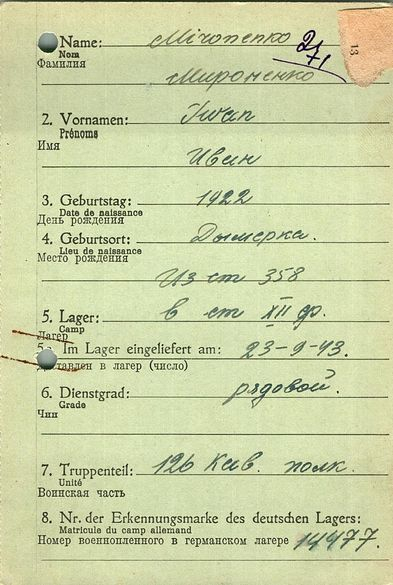 Name: Mironenko
Nom
Фамилия
Мироненко
13
2. Vornamen: Iwan
Prénoms
Имя
Иван
3. Geburtstag: 1922
Date de naissance
День рождения
4. Geburtsort: Дымерка.
Lieu de naissance
Место рождения
Из ст 358
5. Lager: в ст XII ф.
Camp
Лагер
Im Lager eingeliefert am: 23-9-43.
доставлен в лагер (число)
6. Dienstgrad: рядовой.
Grade
Чин
7. Truppenteil: 126 Кав. полк.
Unité
Воинская часть
8. Nr. der Erkennungsmarke des deutschen Lagers:
Matricule du camp allemand
Номер военнопленного в германском лагере 14477.